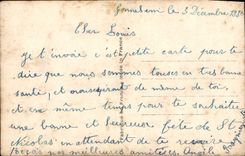 le 3 Décembre 19
Cher Louis
Je t'envoie c'est petite carte pour te
dire que nous sommes tous en très bonne
santé, et
et en même temps pour te souhaiter
une bonne et heureuse fête de St
Nicolas en attendant de te revoir
meilleures amitiées